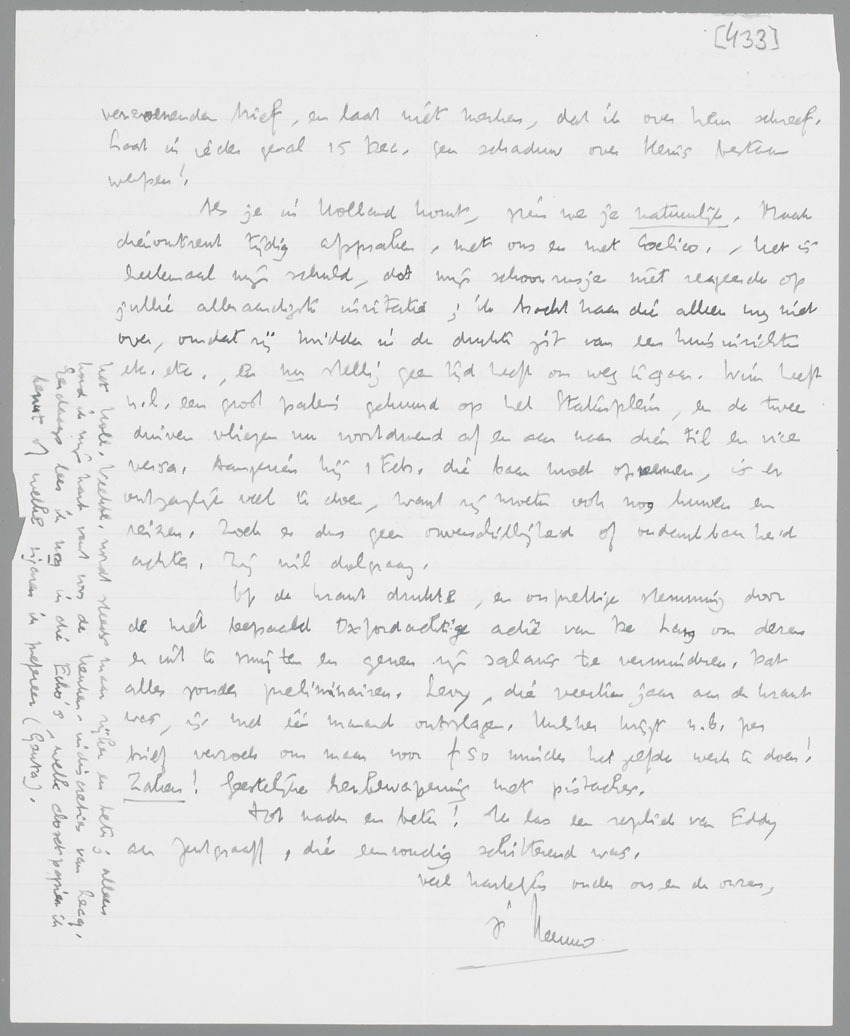 [433]
verzoenenden brief, en laat niét merken, dat ik over hem schreef.
Laat in ieder geval 15 Dec. geen schaduw over Kerstmis
werpen!
Als je in Holland komt, zien we je natuurlijk. Maak
dienomtrent tijdig afspraken, met ons en met Coelico. Het is
heelemaal mijn schuld, dat mijn schoonzusje niet reageerde op
jullie alleraardigste invitatie; ik bracht haar die alleen nog niet
over, omdat zij midden in de drukte zit van een huis inrichten
etc. etc., en nu stellig geen tijd heeft om weg te gaan. Wim heeft
n.l. een groot paleis gehuurd op het Statenplein, en de twee
duiven vliegen nu voortdurend af en aan naar dien til en vice
versa. Aangezien hij 1 Febr. die baan moet opnemen, is er
ontzaglijk veel te doen, want zij moeten ook nog huwen en
reizen. Zoek er dus geen onverschilligheid of ondankbaarheid
achter. Zij wil dolgraag.
Op de krant drukte, en onprettige stemming door
de niet bepaald Oxfordachtige actie van De Lang om dezen
er uit te smijten en genen zijn salaris te verminderen. Dat
alles zonder preliminairen. Levy, die veertien jaar aan de krant
was, is met één maand ontslagen. Mulder krijgt n.b. per
brief verzoek om maar voor ƒ 50 minder hetzelfde werk te doen!
Zaken! Geestelijke herbewapening met pistaches.
Tot nader en beter! Ik las een repliek van Eddy
aan Zentgraaff, die eenvoudig schitterend was.
Veel hartelijks onder ons en de onzen,
je Menno
Het Holl. Weekbl. wordt steeds maar rijker en beter; alleen
houd ik mijn hart vast voor de keuken-indiscreties van Greg.
Eerdaags lees ik nog in die Echo's, welk closetpapier ik
benut of welke sigaren ik prefereer (Gentra).